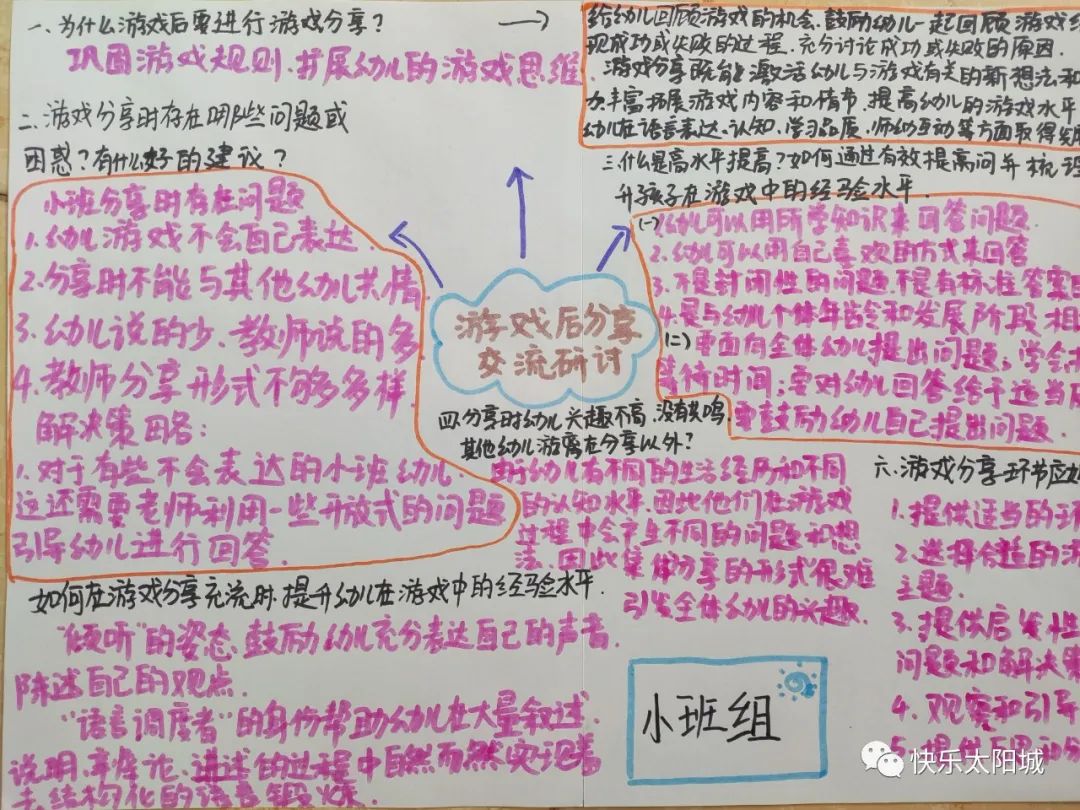 一、为什么游戏后要进行游戏分享?
巩固游戏规则、扩展幼儿的游戏思维
给幼儿回顾游戏的机会、鼓励幼儿一起回顾游戏
现成功或失败的过程、充分讨论成功或失败的原因.
游戏分享既能激活幼儿与游戏有关的新想法和
丰富拓展游戏内容和情节、提高幼儿的游戏水平
幼儿在语言表达、认知、学习品质、师幼互动等方面取得发展
二、游戏分享时存在哪些问题或
困惑?有什么好的建议?
小班分享时存在问题
1.幼儿游戏不会自己表达.
2.分享时不能与其他幼儿共情.
3.幼儿说的少、教师说的多
4.教师分享形式不够多多样
解决策略:
1.对于有些不会表达的小班幼儿.
这还需要老师利用一些开放式的问题
引导幼儿进行回答.
游戏后分享
交流研讨
三.什么是高水平提高?如何通过有效提高问并梳理
升孩子在游戏中的经验水平.
(一)1.幼儿可以用所学知识来回答问题.
2.幼儿可以用自己喜欢的方式来回答
3.不是封闭性的问题.不是有标准答案
4.是与幼儿个体年龄和发展阶段相
(二)要面向全体幼儿提出问题;学会
等待时间;要对幼儿回答给予适当
要鼓励幼儿自己提出问题.
四.分享时幼儿兴趣不高、没有共鸣,
其他幼儿游离在分享以外?
由于幼儿有不同的生活经历和不同
的认知水平.因此他们在游戏
过程中会产生不同的问题和想
法.因此集体分享的形式很难
引发全体幼儿的兴趣.
如何在游戏分享交流时.提升幼儿在游戏中的经验水平.
"倾听"的姿态.鼓励幼儿充分表达自己的声音.
陈述自己的观点.
"语言调度者"的身份帮助幼儿在大量叙述.
说明.讨论、讲述的过程中自然而然实现着
结构化的语言锻炼.
六.游戏分享环节应
1.提供适当的环
2.选择合适的游
主题.
3.提供启发性
问题和解决策
4.观察和引导
5.提供
小班组
快乐太阳城